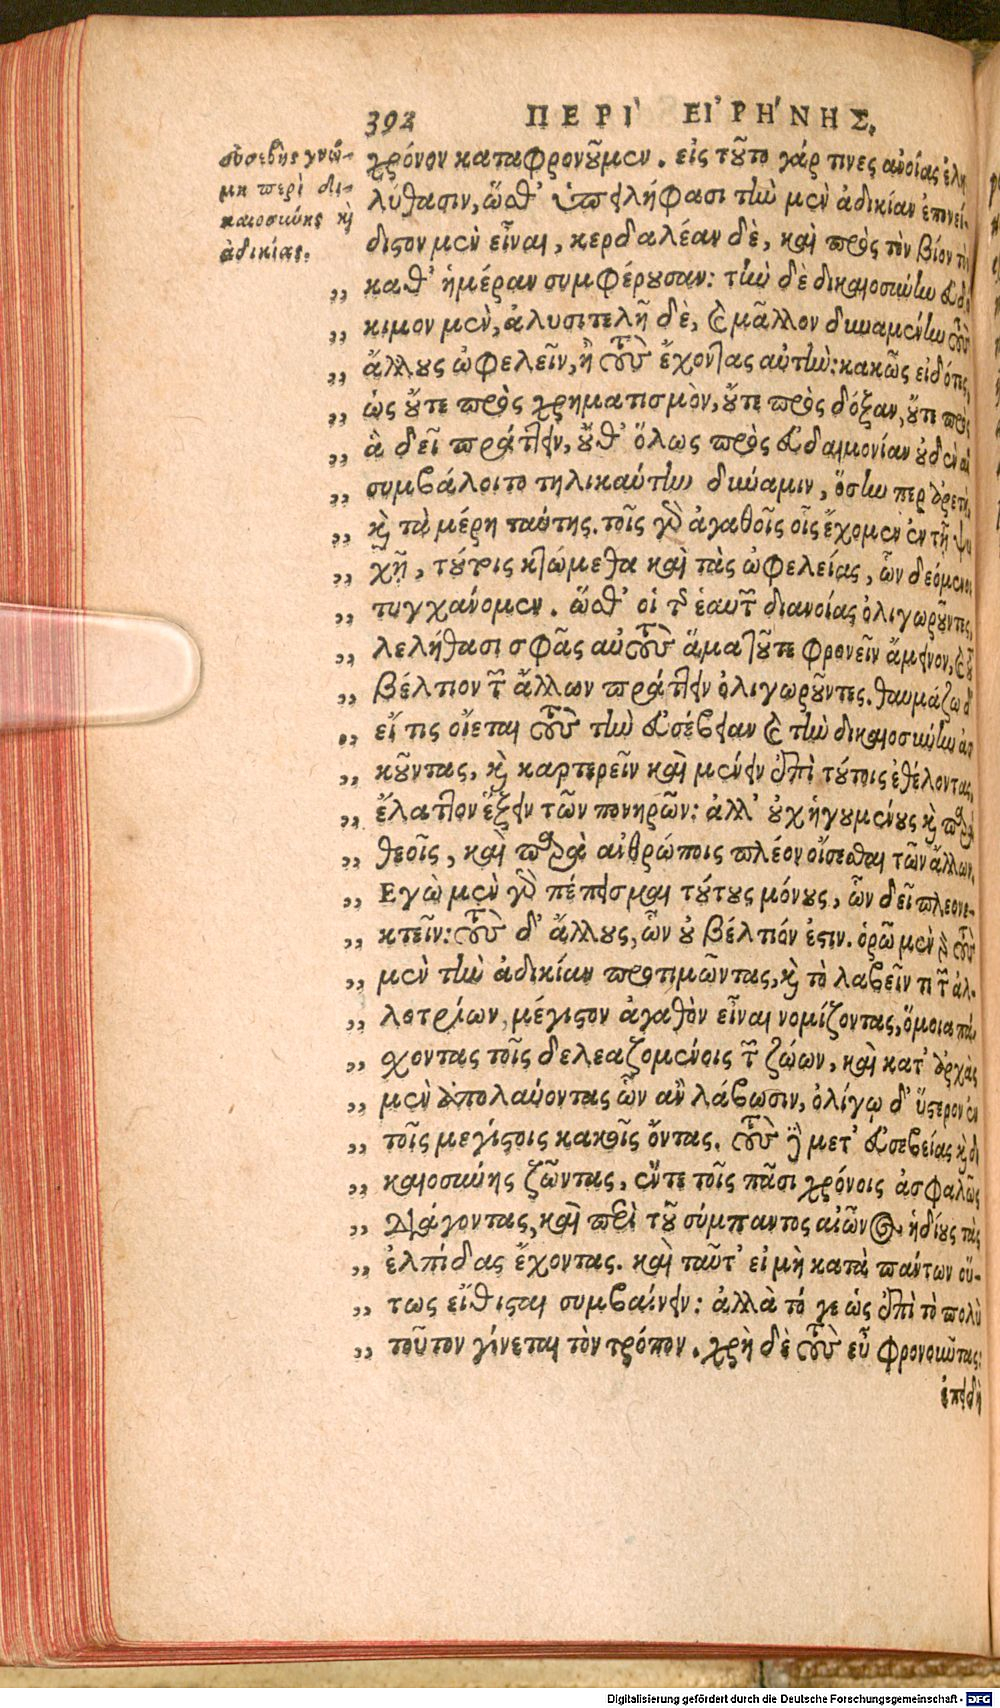 392 ΠΕΡῚ ΕἸΡΉΝΗΣ.
εὐσεβὴς γνώ-
μη περὶ δι-
καιοσύνης καὶ
ἀδικίας.
χρόνον καταφρονοῦμεν. εἰς τοῦτο γάρ τινες ἀνοίας ἐλη
λύθασιν, ὥσθ' ὑπειλήφασι τὴν μὲν ἀδικίαν ἐπονεί-
διστον μὲν εἶναι, κερδαλέαν δὲ, καὶ πρὸς τὸν βίον τὸν
„ καθ' ἡμέραν συμφέρουσαν: τὴν δὲ δικαιοσύνην εὐδό
„ κιμον μὲν, ἀλυσιτελῆ δὲ, καὶ μᾶλλον δυναμένην τοὺς
„ ἄλλους ὠφελεῖν, ἢ τοὺς ἔχοντας αὐτήν: κακῶς εἰδότες,
„ ὡς οὔτε πρὸς χρηματισμὸν, οὔτε πρὸς δόξαν, οὔτε πρὸς
„ ἃ δεῖ πράττειν, οὔθ' ὅλως πρὸς εὐδαιμονίαν οὐδὲν ἂν
„ συμβάλοιτο τηλικαύτην δύναμιν, ὅσην περ ἀρετὴ,
„ καὶ τὰ μέρη ταύτης. τοῖς γὰρ ἀγαθοῖς οἷς ἔχομεν ἐν τῇ ψυ
„ χῇ, τούτοις κτώμεθα καὶ τὰς ὠφελείας, ὧν δεόμενοι
„ τυγχάνομεν. ὥσθ' οἱ τῆς ἑαυτῶν διανοίας ὀλιγωροῦντες,
„ λελήθασι σφᾶς αὐτοὺς ἅμα τοῦτε φρονεῖν ἄμεινον, καὶ τοῦ
„ βέλτιον τῶν ἄλλων πράττειν ὀλιγωροῦντες. θαυμάζω δ'
„ εἴ τις οἴεται τοὺς τὴν εὐσέβειαν καὶ τὴν δικαιοσύνην ἀσ
„ κοῦντας, καὶ καρτερεῖν καὶ μένειν ἐπὶ τούτοις ἐθέλοντας,
„ ἔλαττον ἕξειν τῶν πονηρῶν: ἀλλ' οὐχ ἡγουμένους καὶ παρὰ
„ θεοῖς, καὶ παρὰ ἀνθρώποις πλέον οἴσεσθαι τῶν ἄλλων.
„ Εγὼ μὲν γὰρ πέπεισμαι τούτους μόνους, ὧν δεῖ πλεονε-
„ κτεῖν: τοὺς δ' ἄλλους, ὧν οὐ βέλτιόν ἐστιν. ὁρῶ μὲν γὰρ τοὺς
„ μὲν τὴν ἀδικίαν προτιμῶντας, καὶ τὸ λαβεῖν τι τῶν ἀλ-
„ λοτρίων, μέγιστον ἀγαθὸν εἶναι νομίζοντας, ὅμοια πά
„ σχοντας τοῖς δελεαζομένοις τῶν ζώων, καὶ κατ' ἀρχὰς
„ μὲν ἀπολαύοντας ὧν ἂν λάβωσιν, ὀλίγῳ δ' ὕστερον ἐν
„ τοῖς μεγίστοις κακοῖς ὄντας. τοὺς δὲ μετ' εὐσεβείας καὶ δι
„ καιοσύνης ζῶντας, ἔν τε τοῖς πᾶσι χρόνοις ἀσφαλῶς
„ διάγοντας, καὶ περὶ τοῦ σύμπαντος αἰῶνος ἡδίους τὰς
„ ἐλπίδας ἔχοντας. καὶ ταῦτ' εἰ μὴ κατὰ πάντων οὕ-
„ τως εἴθισται συμβαίνειν: ἀλλὰ τό γε ὡς ἐπὶ τὸ πολὺ
„ τοῦτον γίνεται τὸν τρόπον. χρὴ δὲ τοὺς εὖ φρονοῦντας:
ἐπειδὴ
Digitalisierung gefördert durch die Deutsche Forschungsgemeinschaft - DFG